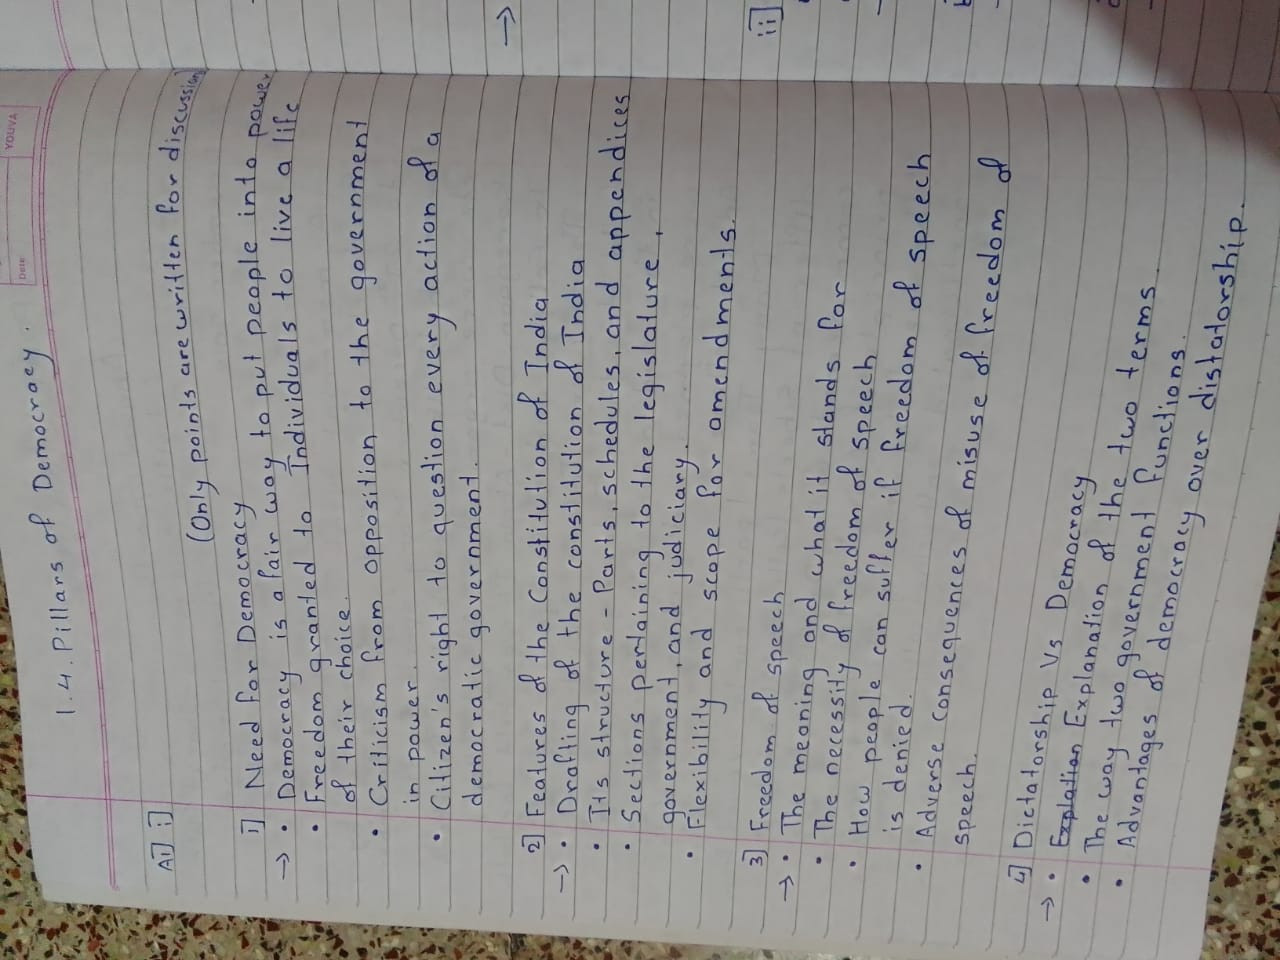 YOUVA
Date
1.4. Pillars of Democracy.
A1] i]
(Only points are written for discussion)
1] Need for Democracy
→ • Democracy is a fair way to put people into power
• Freedom granted to Individuals to live a life
of their choice.
• Criticism from opposition to the government
in power.
• Citizen's right to question every action of a
democratic government.
2] Features of the Constitution of India
→ • Drafting of the constitution of India
• Its structure - Parts, schedules, and appendices
• Sections pertaining to the legislature,
government, and judiciary.
• Flexibility and scope for amendments.
3] Freedom of speech
→ • The meaning and what it stands for
• The necessity of freedom of speech
• How people can suffer if freedom of speech
is denied.
• Adverse consequences of misuse of freedom of
speech.
4] Dictatorship Vs Democracy
→ • Explation Explanation of the two terms.
• The way two government functions.
• Advantages of democracy over distatorship.
→
ii]